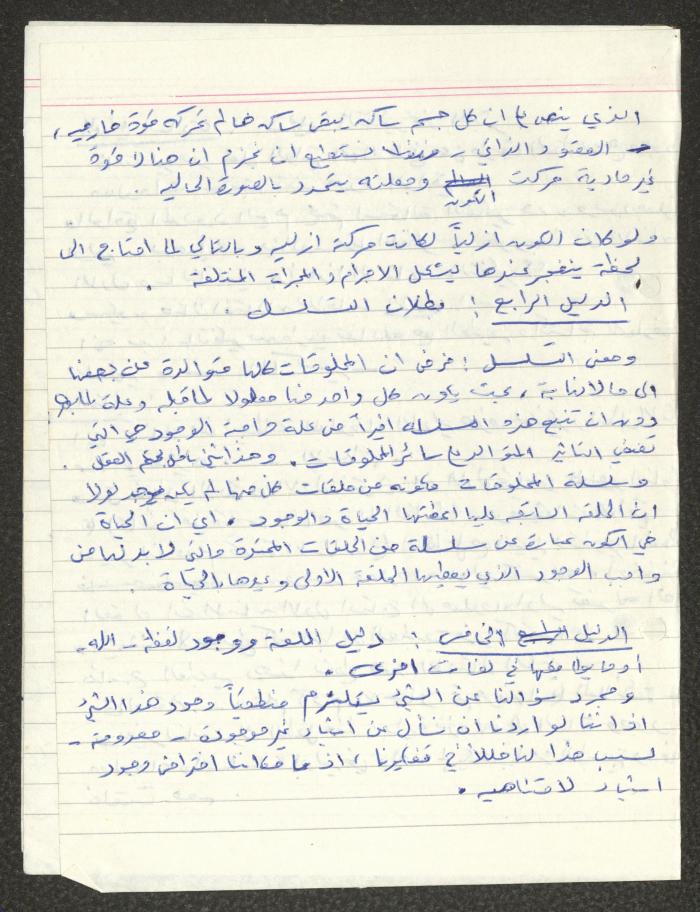 الذي ينص ع ان كل جسم ساكن يبقى ساكن ما لم تحركه قوة خارجيه،
العفو والذاتي - نستطيع ان نجزم ان هنالك قوة
غير مادية حركت الكون وجعلته يتمدد بالصورة الحاليه.
ولو كان الكون ازلياً لكانت حركته ازليه وبالتالي لما احتاج الى
لحظة ينفجر عندها ليشكل الاجرام والمجرات المختلفة.
الدليل الرابع: بطلان التسلسل.
ومعنى التسلسل: فرض ان المخلوقات كلها متوالدة عن بعضها
الى ما لا نهاية، بحيث يكون كل واحد منها معلولا لما قبله وعلة لما بعده
دون ان تنبع هذه السلسله اخيراً من علة واجبة الوجود هي التي
تضفي التاثير المتوالد ع سائر المخلوقات. وهذا شئ باطل بحكم العقل.
وسلسلة المخلوقات مكونه من حلقات كل منها لم يكن يوجد لولا
ان الحلقه السابقه عليها اعطتها الحياة والوجود. اي ان الحياة
في الكون عبارة عن سلسلة من الحلقات الممتدة والتي لا بد لها من
واجب الوجود الذي يعطيها الحلقة الأولى ويهبها الحياة.
الدليل الرابع الخامس: دليل اللغة ووجود لفظة - الله -
أو ما يوازيها في لغات اخرى.
ومجرد سؤالنا عن الشئ يستلزم منطقياً وجود هذا الشئ
اذ اننا لو اردنا ان نسأل عن اشياء غير موجودة - معدومة -
لسبب هذا لنا خللاً في تفكيرنا، اذ ما بامكاننا افتراض وجود
اشياء لا متناهيه.